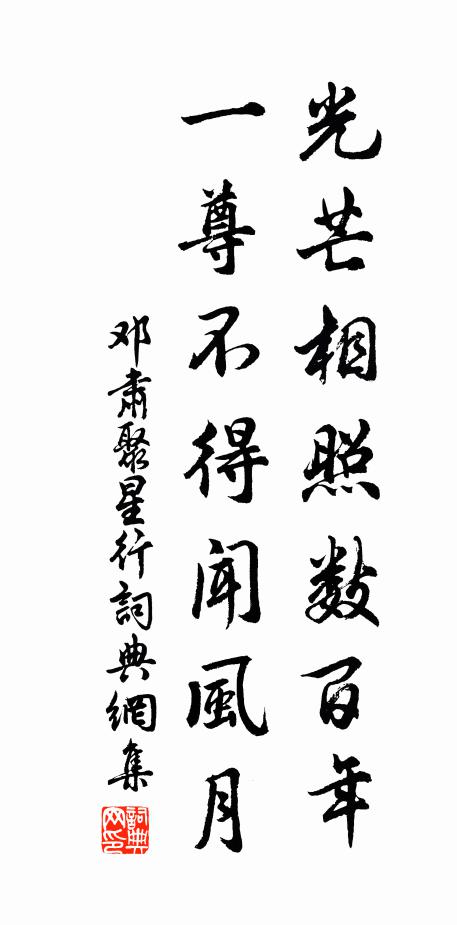 光芒相照数百年
一尊不得闻風月
邓肃聚星行詞典網集
詞典网印